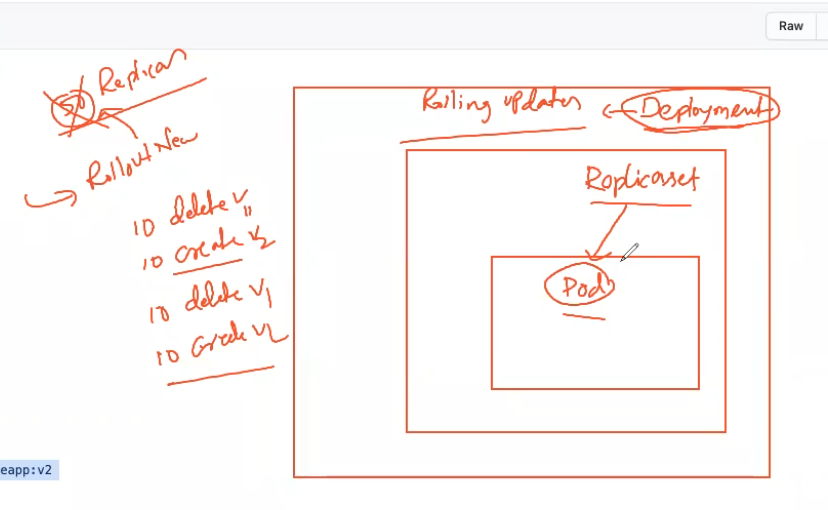 Raw
50 Replicas
Rollout New
10 delete v1
10 create v2
10 delete v1
10 Create v2
Rolling updates ← Deployment
Replicaset
Pod
eapp:v2